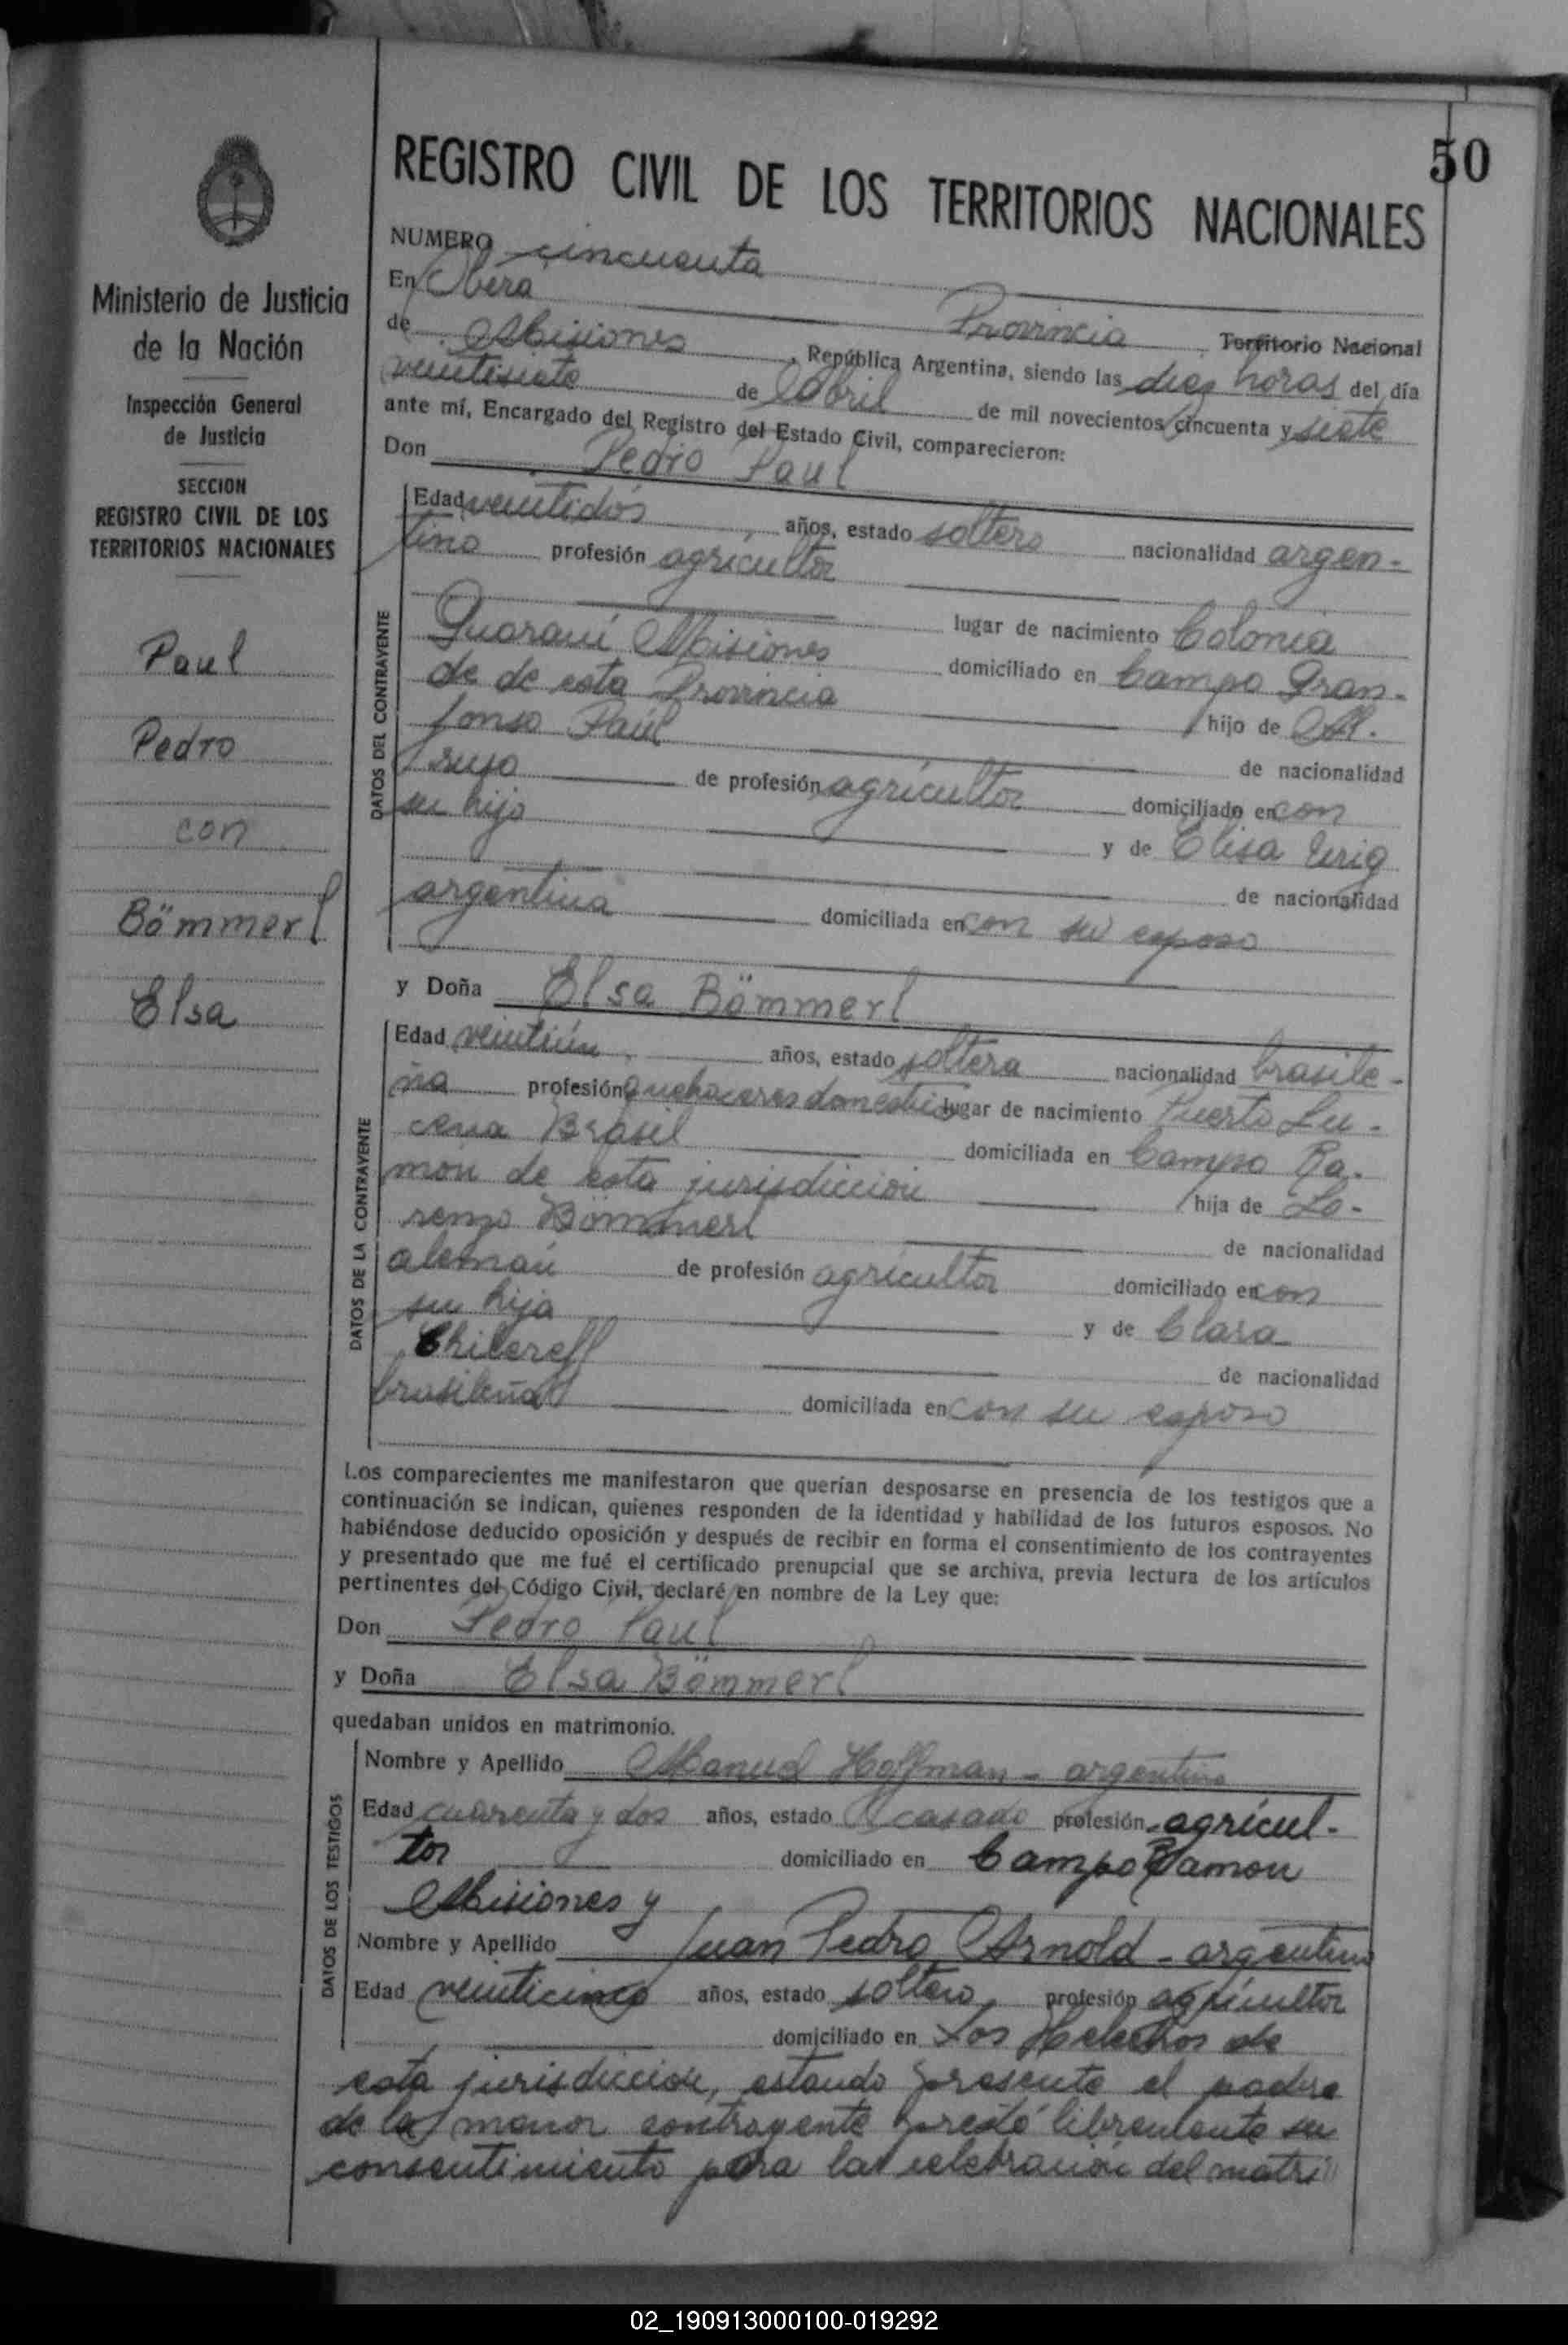 50
REGISTRO CIVIL DE LOS TERRITORIOS NACIONALES
Ministerio de Justicia
de la Nación
Inspección General
de Justicia
SECCION
REGISTRO CIVIL DE LOS
TERRITORIOS NACIONALES
Paul
Pedro
con
Bömmerl
Elsa
NUMERO cincuenta
En Oberá
Provincia Territorio Nacional
de Misiones, República Argentina, siendo las diez horas del día
veintisiete de Abril de mil novecientos cincuenta y siete
ante mí, Encargado del Registro del Estado Civil, comparecieron:
Don Pedro Paul
DATOS DEL CONTRAYENTE
Edad veintidós años, estado soltero nacionalidad argen-
tino profesión agricultor
lugar de nacimiento Colonia
Guaraní Misiones domiciliado en Campo Gran-
de de esta Provincia hijo de Al.
fonso Paul de nacionalidad
ruso de profesión agricultor domiciliado en con
su hijo y de Elisa Urig
de nacionalidad
argentina domiciliada en con su esposo
y Doña Elsa Bömmerl
DATOS DE LA CONTRAYENTE
Edad veintiún años, estado soltera nacionalidad brasile-
ña profesión quehaceres domesticos lugar de nacimiento Puerto Lu-
cena Brasil domiciliada en Campo Ra-
món de esta jurisdicción hija de Lo-
renzo Bömmerl de nacionalidad
alemán de profesión agricultor domiciliado en con
su hija y de Clara
de nacionalidad
brasileña domiciliada en con su esposo
Los comparecientes me manifestaron que querían desposarse en presencia de los testigos que a
continuación se indican, quienes responden de la identidad y habilidad de los futuros esposos. No
habiéndose deducido oposición y después de recibir en forma el consentimiento de los contrayentes
y presentado que me fué el certificado prenupcial que se archiva, previa lectura de los artículos
pertinentes del Código Civil, declaré en nombre de la Ley que:
Don Pedro Paul
y Doña Elsa Bömmerl
quedaban unidos en matrimonio.
DATOS DE LOS TESTIGOS
Nombre y Apellido Manuel Hoffman - argentino
Edad cuarenta y dos años, estado casado profesión agricul-
tor domiciliado en Campo Ramon
Misiones y
Nombre y Apellido Juan Pedro Arnold - argentino
Edad veinticinco años, estado soltero profesión agricultor
domiciliado en Los Helechos de
esta jurisdicción, estando presente el padre
de la menor contrayente prestó libremente su
consentimiento para la celebración del matri
02_190913000100-019292